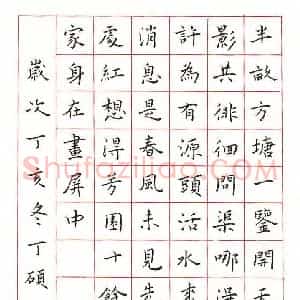 半畝方塘一鑒開
影共徘徊問渠哪得
許為有源頭活水來
消息是春風未見先
處紅想得芳園十餘
家身在畫屏中
歲次丁亥冬丁碩
Shufaziliao.com